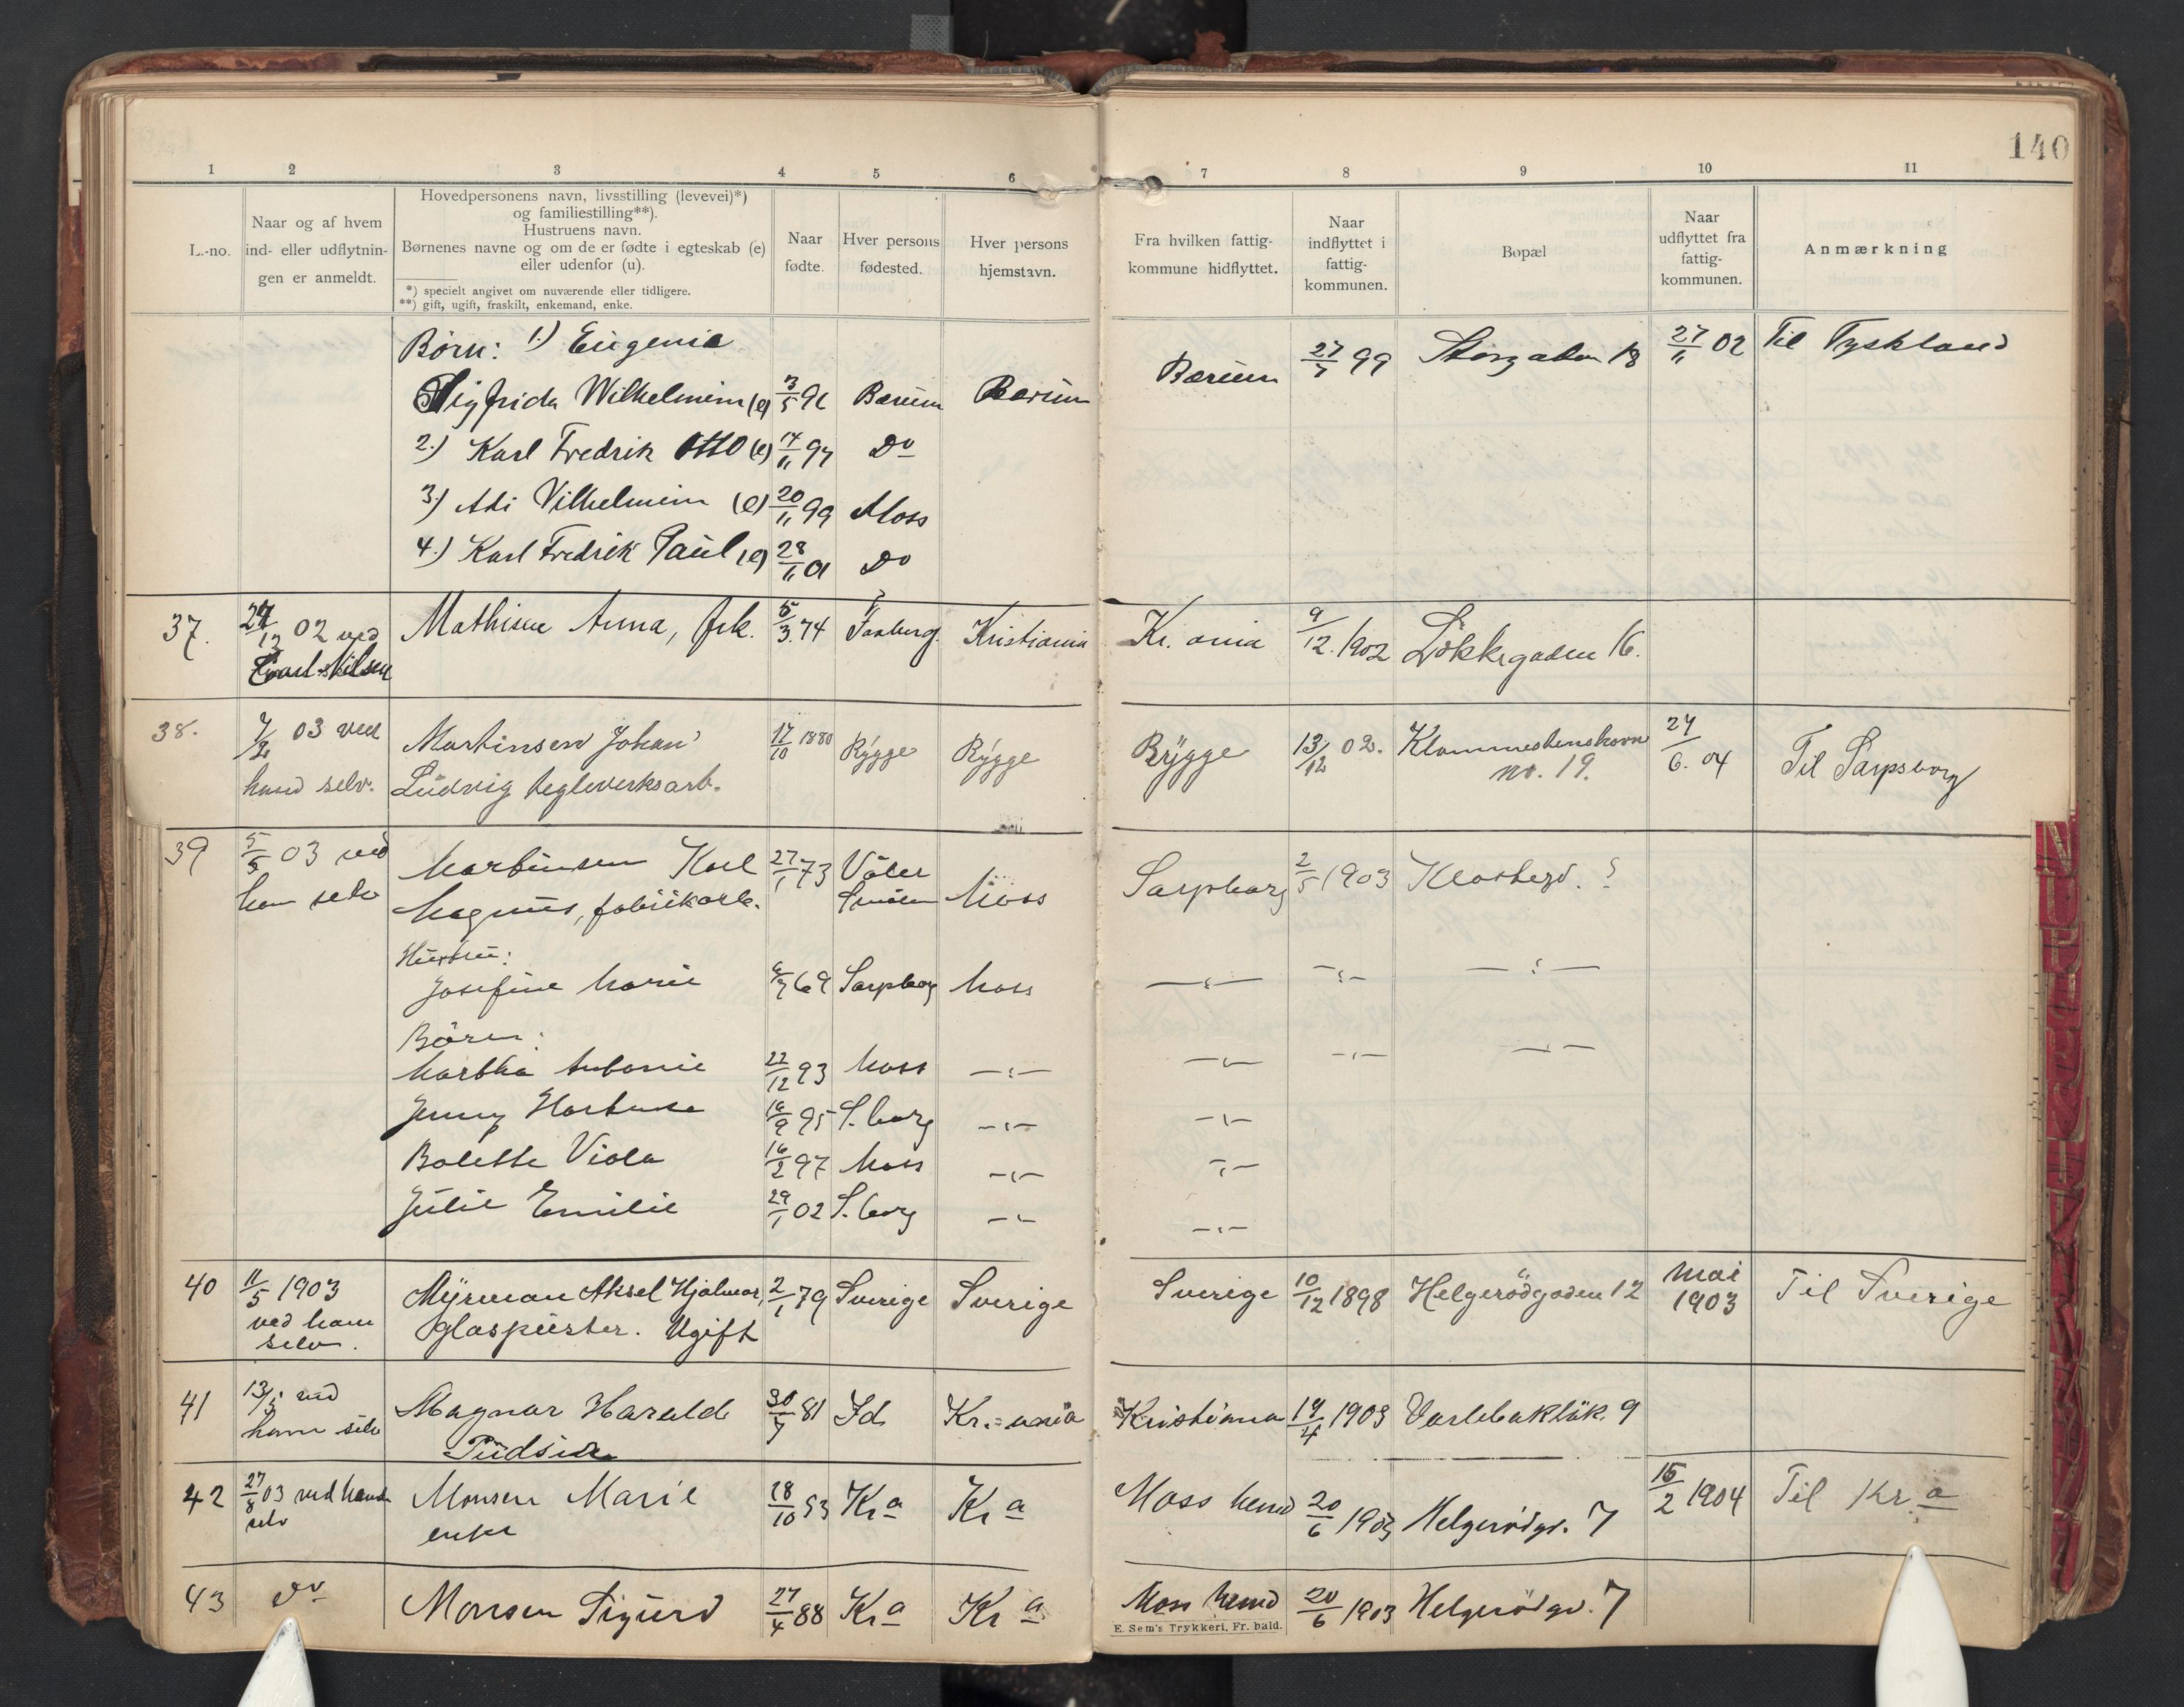 140
1 2 3 4 5 6 7 8 9 10 11
L.-no.
Naar og af hvem
ind- eller udflytnin-
gen er anmeldt.
Hovedpersonens navn, livsstilling (levevei)*)
og familiestilling**).
Hustruens navn.
Børnenes navne og om de er fødte i egteskab (e)
eller udenfor (u).
*) specielt angivet om nuværende eller tidligere.
**) gift, ugift, fraskilt, enkemand, enke.
Naar
fødte.
Hver persons
fødested.
Hver persons
hjemstavn.
Fra hvilken fattig-
kommune hidflyttet.
Naar
indflyttet i
fattig-
kommunen.
Bopæl
Naar
udflyttet fra
fattig-
kommunen.
Anmærkning
Børn: 1.) Eugenia
Sigfrida Wilhelmine (e) 3/5 96 Bærum Bærum Bærum 27/7 99 Storgaden 18 27/11 02 Til Tyskland
2.) Karl Fredrik Otto (e) 14/11 97 Do
3.) Adi Vilhelmine (e) 20/11 99 Moss
4.) Karl Fredrik Paul (e) 28/11 01 Do
37. 27/12 02 ved Mathisen Anna, frk. 5/3. 74 Faaberg Kristiania Kr. ania 9/12. 1902 Løkkegaden 16.
Carl Nilsen
38. 7/2 03 ved Martinsen Johan 17/10 1880 Rygge Rygge Rygge 13/12 02. Klommestenskovn 24/6. 04 Til Sarpsborg
ham selv. Ludvig teglverksarb. no. 19.
39 5/5 03 ved Martinsen Karl 27/1 73 Våler Sarpsborg 2/5 1903 Klostergd. ?
ham selv Magnus, fabrikarb. Smålen Moss
Hustru:
Josefine Marie 6/7 69 Sarpsborg Moss —„— —„— —„—
Børn:
Martha Antonie 22/12 93 Moss —„— —„— —„— —„—
Jenny Hortense 16/9 95 S.borg —„— —„—
Bolette Viola 16/2 97 Moss —„— —„—
Julie Emilie 29/1 02 S.borg —„— —„—
40 11/5 1903 Myrman Aksel Hjalmar, 2/1 79 Sverige Sverige Sverige 10/12 1898 Helgerødgaden 12 Mai 1903 Til Sverige
ved ham glaspuster. Ugift
selv.
41 13/5 ved Magnar Harald 30/7 81 Id Kr.=ania Kristiania 14/4 1903 Varlebakløk. 9
ham selv
42 27/8 03 ved hende Monsen Marie 18/10 53 Kra Kra Moss land 20/6 1903 Helgerødgd. 7 15/2 1904 Til Kra
selv enke
43 Do Monsen Sigurd 27/4 88 Kra Kra Moss land 20/6 1903 Helgerødgd. 7
E. Sem's Trykkeri, Fr. hald.